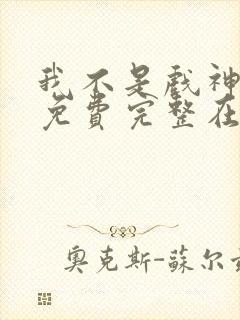 我不是戲神
免費完整在
奧克斯-蘇尔